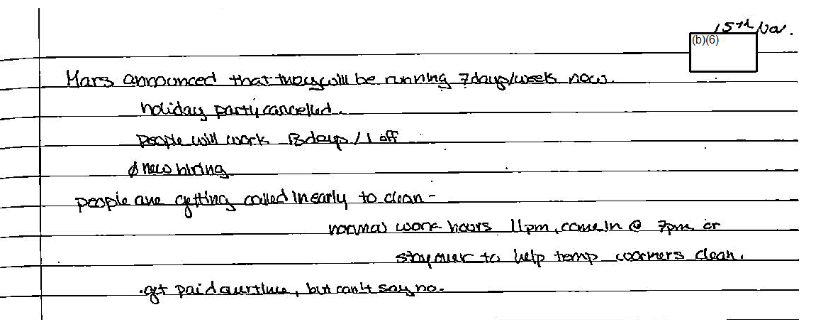 15th Nov.
(b)(6)
Mars announced that they will be running 7days/week now.
holiday party cancelled.
people will work 13days/1 off
new hiring
people are getting called in early to clean -
normal work hours 11pm, come in @ 7pm or
stay over to help temp workers clean.
·get paid overtime, but can't say no.